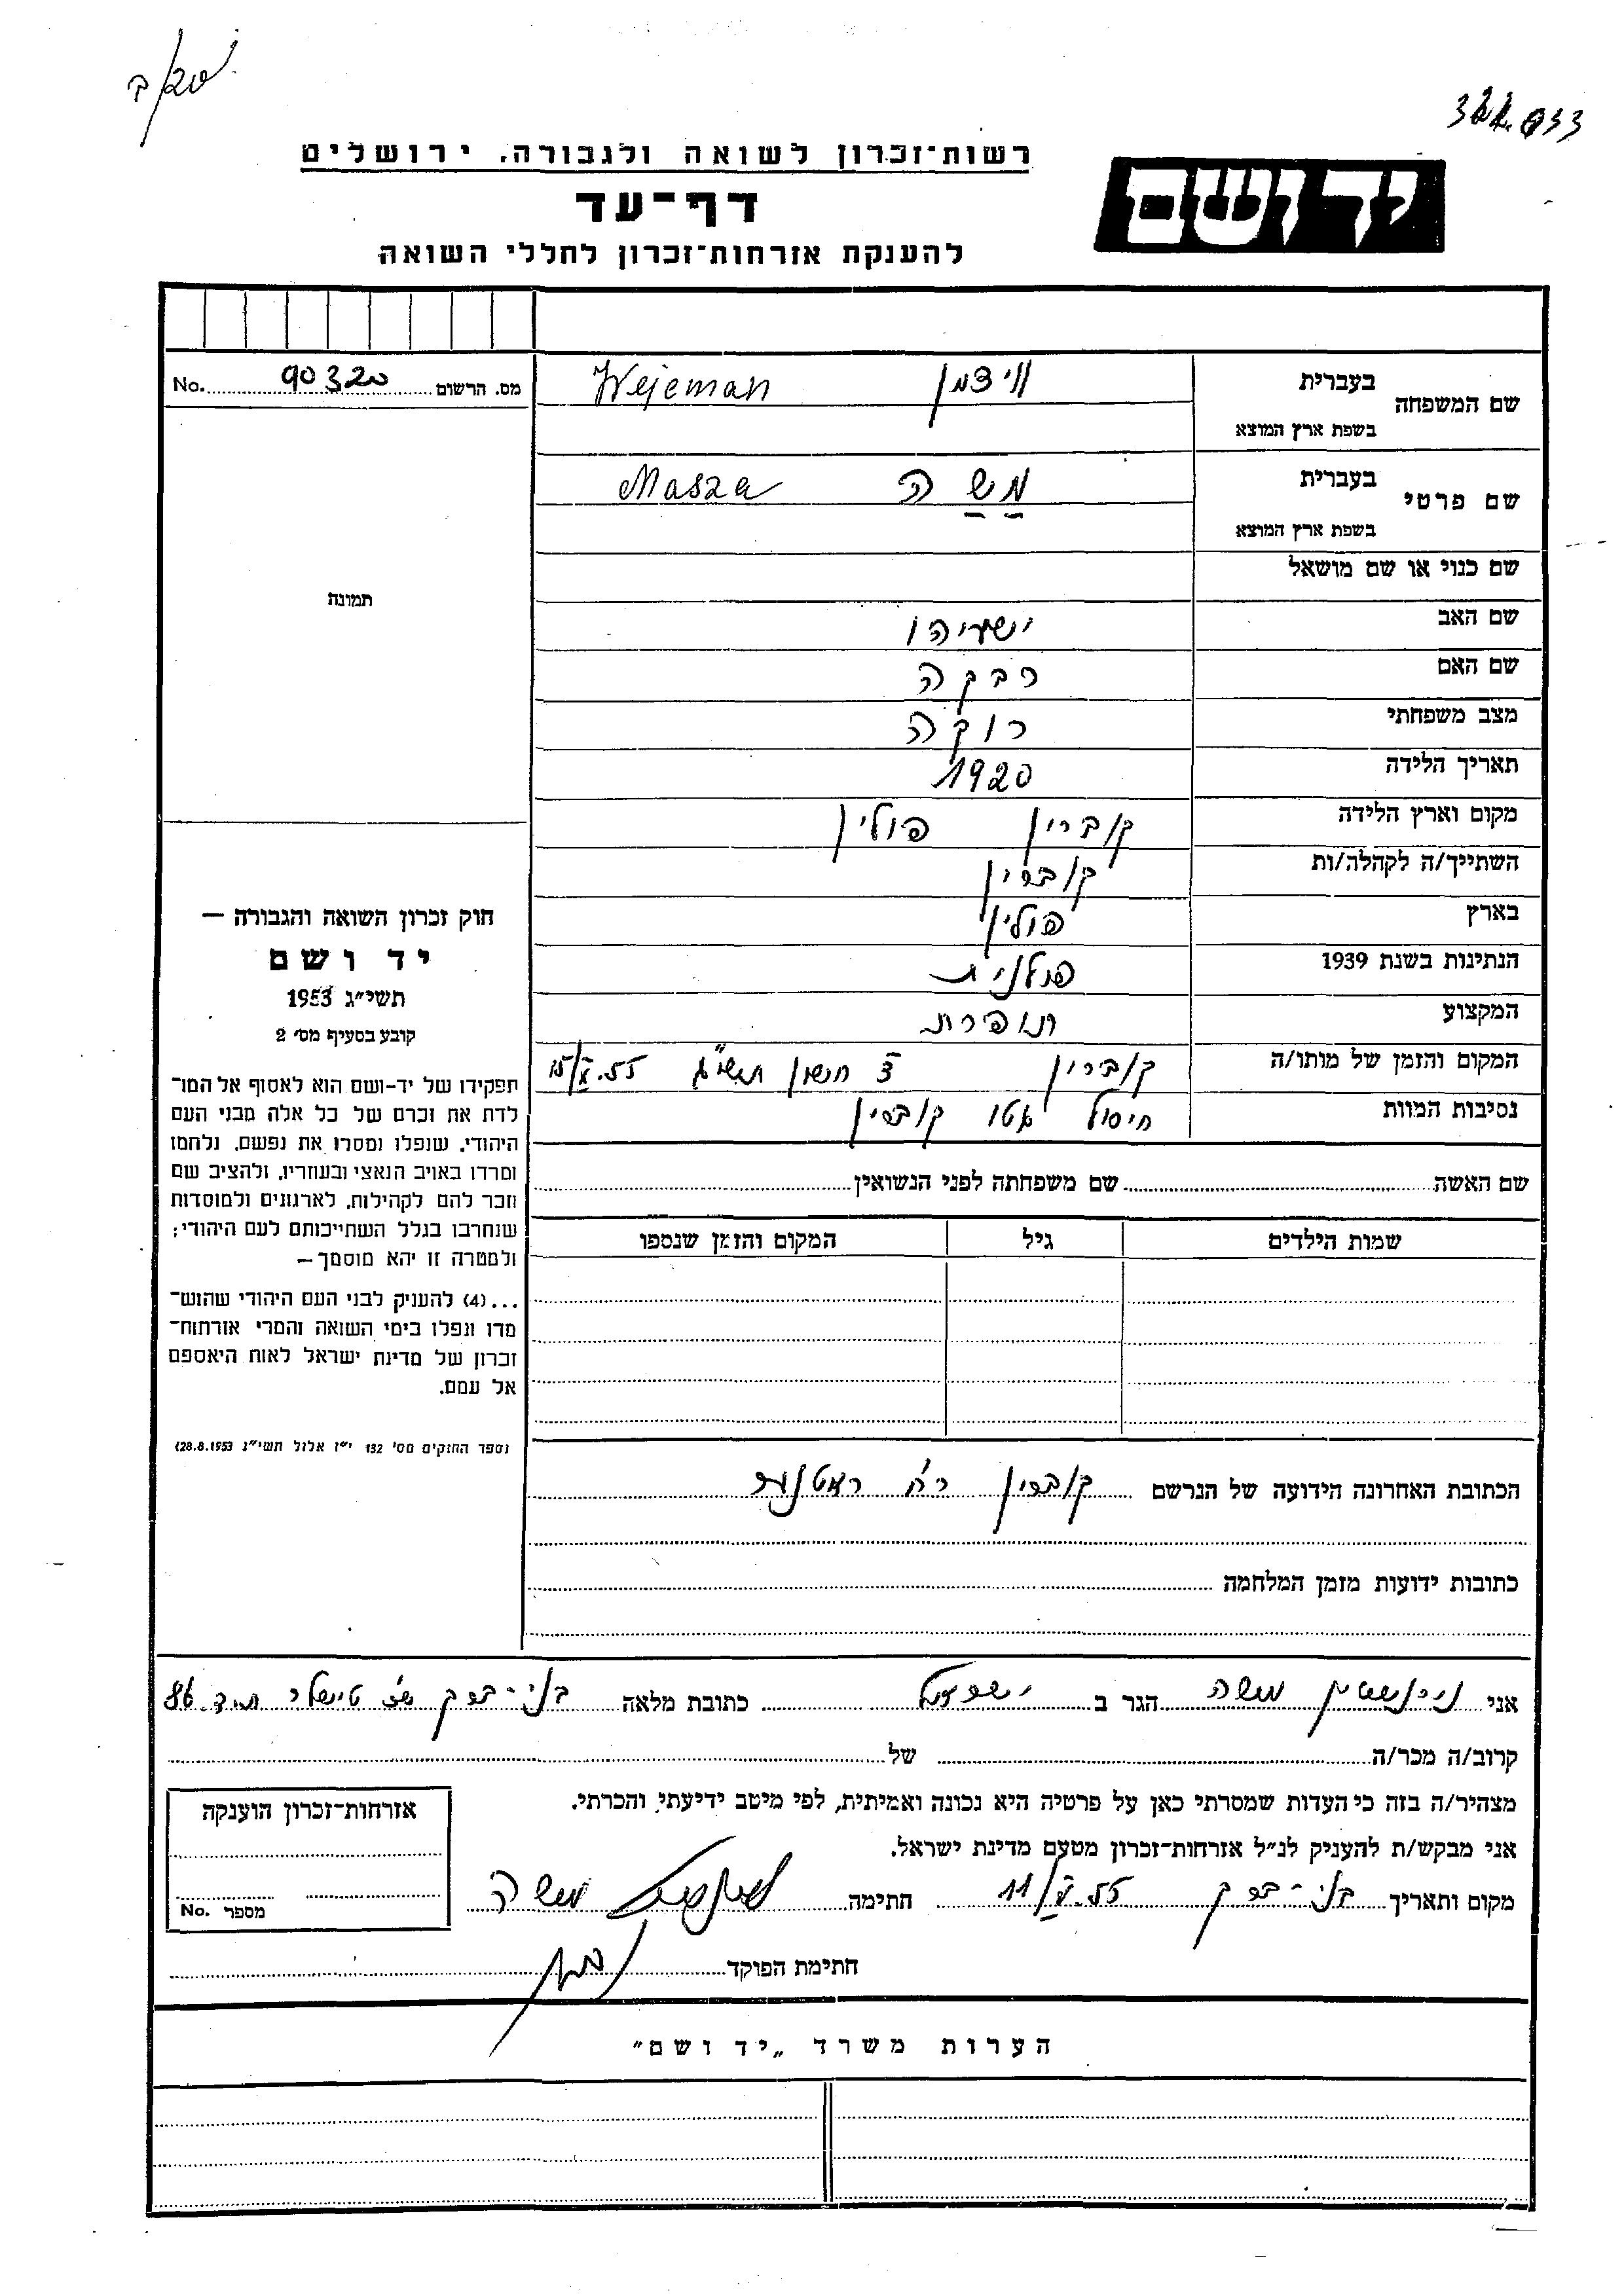 רשות־זכרון לשואה ולגבורה, ירושלים
יד ושם
דף־עד
להענקת אזרחות־זכרון לחללי השואה
שם המשפחה
בעברית
בשפת ארץ המוצא
Wejeman
מס. הרשום 90320 No.
שם פרטי
בעברית משה
בשפת ארץ המוצא
Masza
שם כנוי או שם מושאל
תמונה
שם האב ישעיהו
שם האם רבקה
מצב משפחתי רוקה
תאריך הלידה 1920
מקום וארץ הלידה קוברין פולין
השתייך/ה לקהלה/ות קוברין
בארץ פולין
הנתינות בשנת 1939 פולנית
המקצוע תופרת
המקום והזמן של מותו/ה קוברין חשון
נסיבות המוות חיסול גטו קוברין
שם האשה שם משפחתה לפני הנשואין
שמות הילדים גיל המקום והזמן שנספו
חוק זכרון השואה והגבורה —
יד ושם
תשי״ג 1953
קובע בסעיף מס׳ 2
תפקידו של יד-ושם הוא לאסוף אל המו־
לדת את זכרם של כל אלה מבני העם
היהודי, שנפלו ומסרו את נפשם, נלחמו
ומרדו באויב הנאצי ובעוזריו, ולהציב שם
וזכר להם לקהילות, לארגונים ולמוסדות
שנחרבו בגלל השתייכותם לעם היהודי;
ולמטרה זו יהא מוסמך —
...(4) להעניק לבני העם היהודי שהוש־
מדו ונפלו בימי השואה והמרי אזרחות־
זכרון של מדינת ישראל לאות היאספם
אל עמם.
(ספר החוקים מס׳ 132 י״ז אלול תשי״ג 28.8.1953)
הכתובת האחרונה הידועה של הנרשם קוברין רח׳
כתובות ידועות מזמן המלחמה
אני משה הגר ב ישראל כתובת מלאה בני-ברק 86
קרוב/ה מכר/ה של
מצהיר/ה בזה כי העדות שמסרתי כאן על פרטיה היא נכונה ואמיתית, לפי מיטב ידיעתי והכרתי.
אני מבקש/ת להעניק לנ״ל אזרחות־זכרון מטעם מדינת ישראל.
מקום ותאריך בני-ברק 11/X.55 חתימה משה
חתימת הפוקד
אזרחות־זכרון הוענקה
מספר No.
הערות משרד „יד ושם״